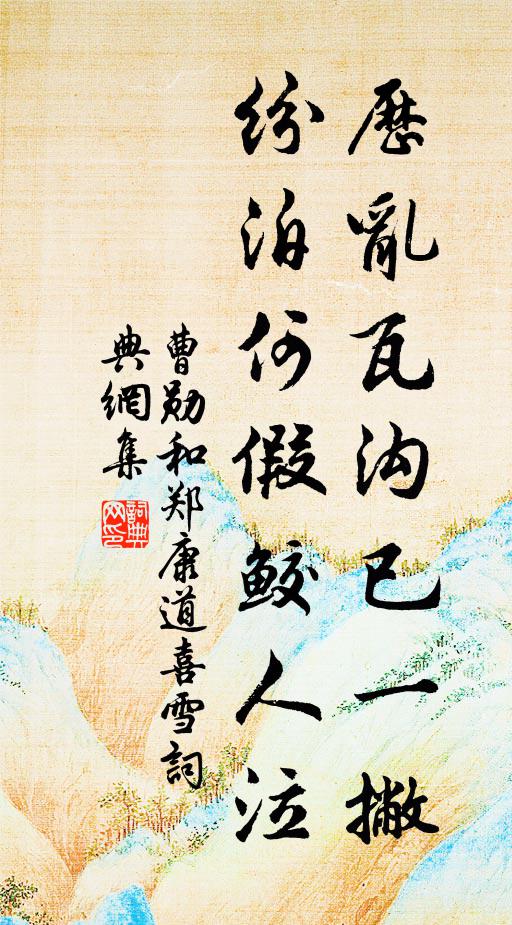 歷亂瓦沟已一撇
紛泊何假鮫人泣
曹勋和郑康道喜雪詞
典網集
詞典网印